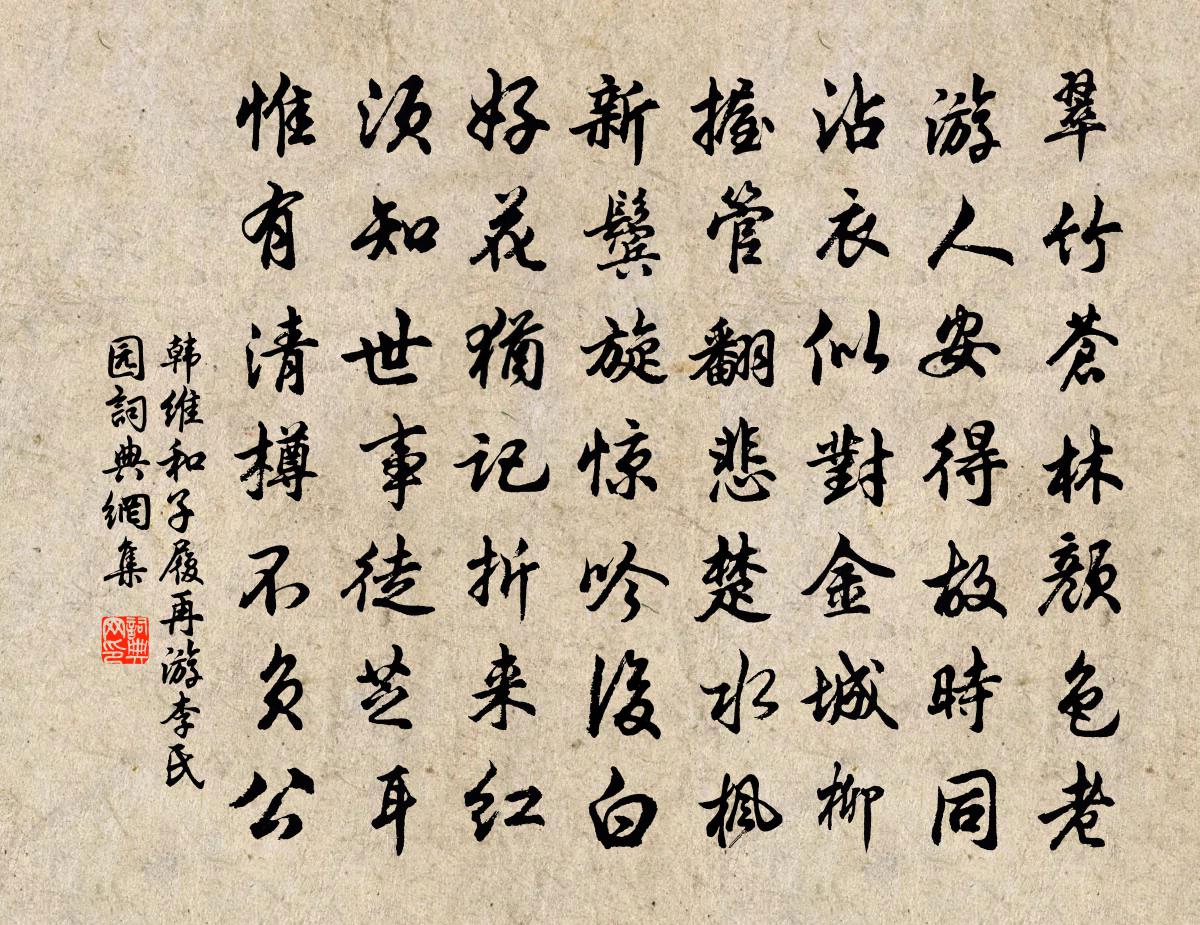 翠竹苍林颜色老
游人安得故時同
沾衣似對金城柳
握管翻悲楚水枫
新鬓旋惊吟後白
好花犹记折来红
须知世事徒芝耳
惟有清樽不负公
韩维和子履再游李氏
园詞典網集
詞典
网印